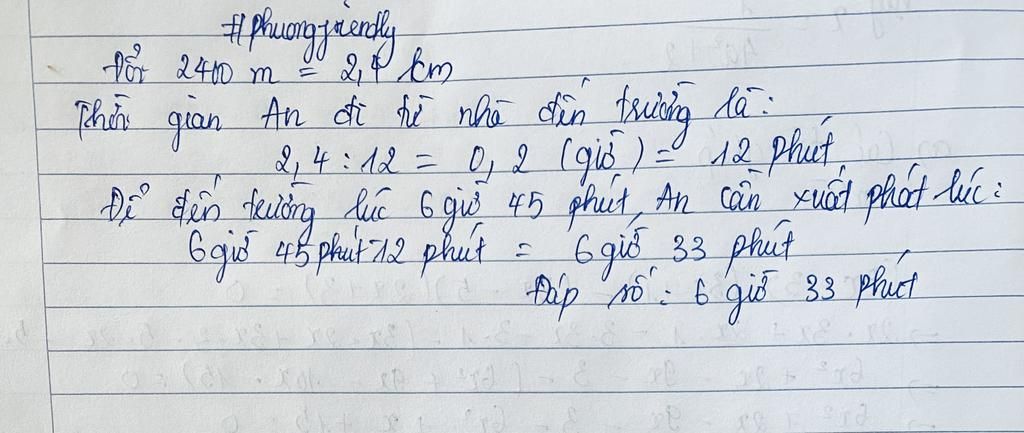 #phuongfriendly
Đổi 2400 m = 2,4 km
Thời gian An đi từ nhà đến trường là:
2,4 : 12 = 0,2 (giờ) = 12 phút
Để đến trường lúc 6 giờ 45 phút, An cần xuất phát lúc:
6 giờ 45 phút - 12 phút = 6 giờ 33 phút
Đáp số: 6 giờ 33 phút